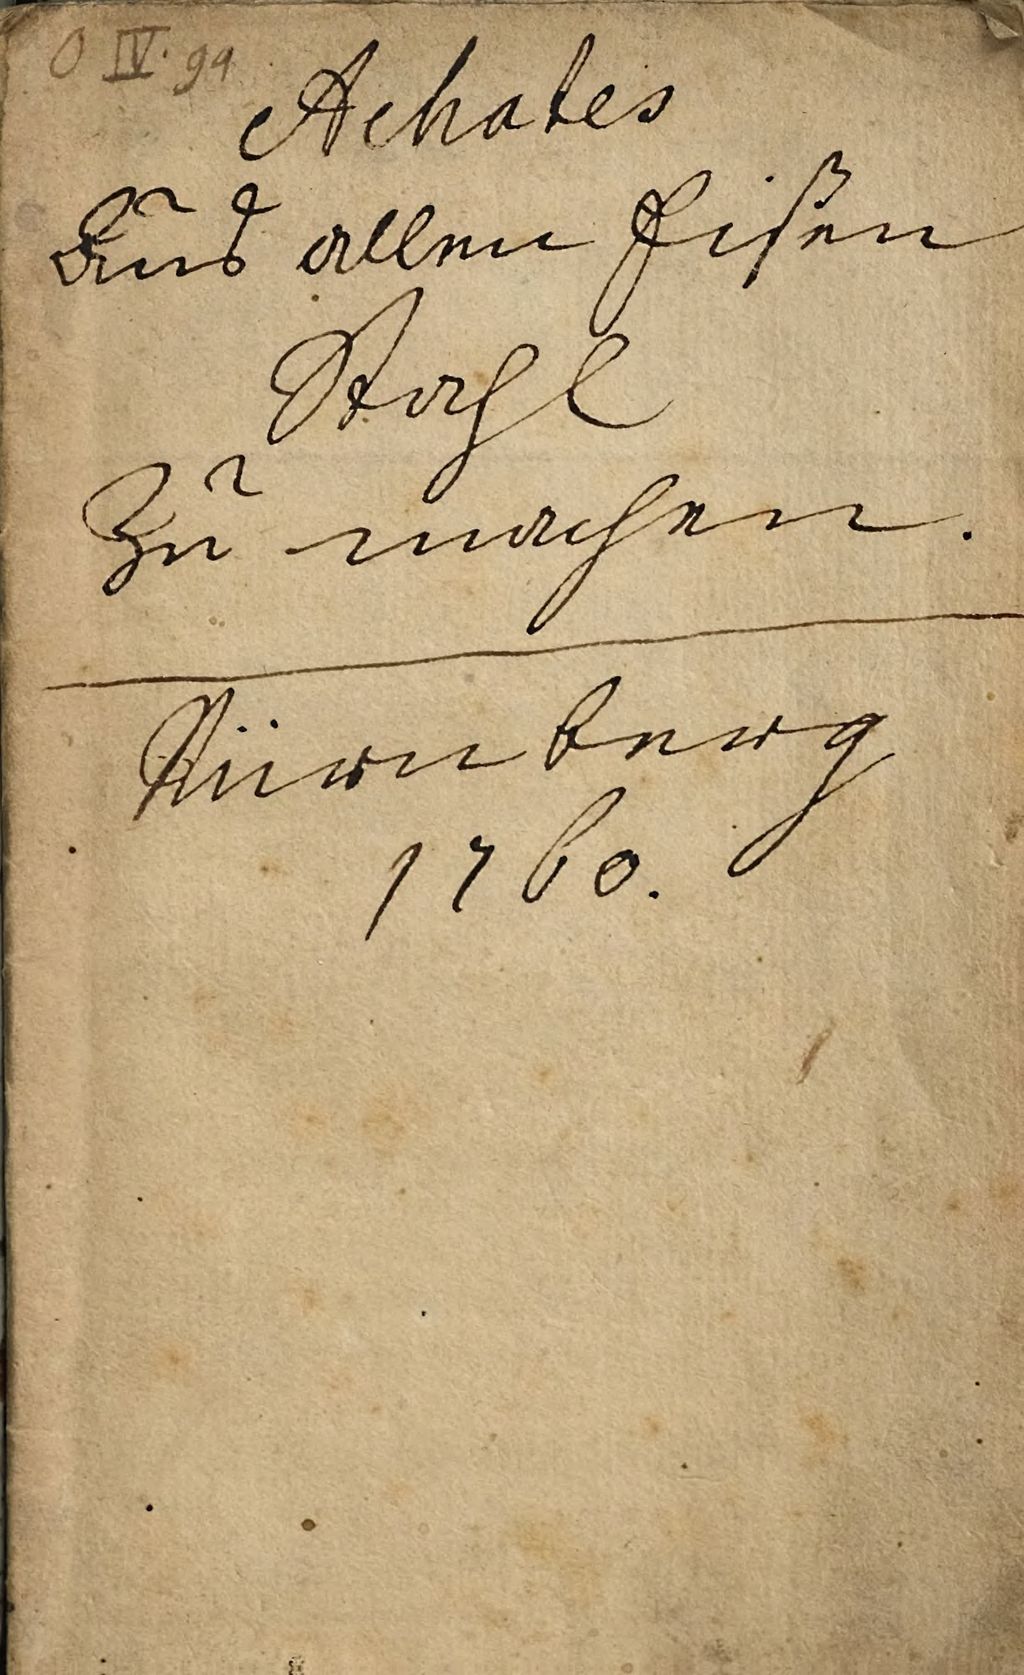 O IV. 99
Achates
Aus allen Eißen
Stahl
Zu machen.
Nürnberg
1760.